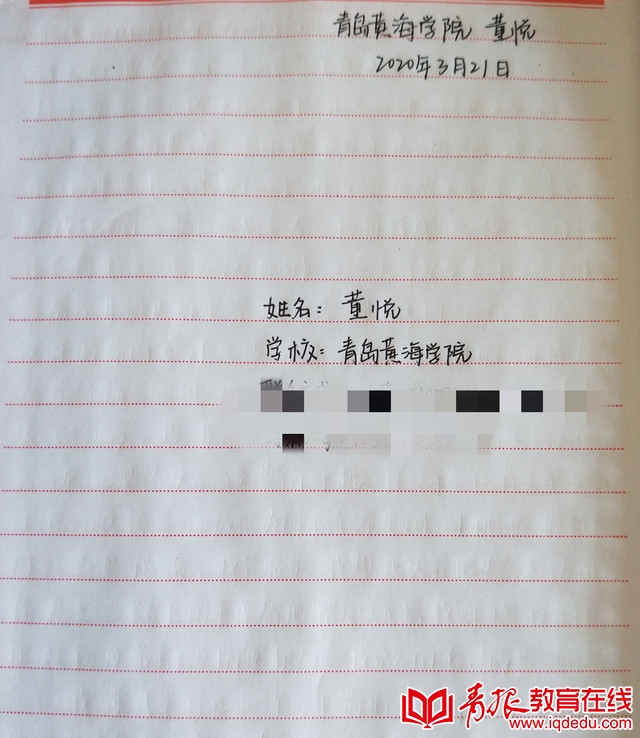 青岛黄海学院 董悦
2020年3月21日
姓名：董悦
学校：青岛黄海学院
青报教育在线
www.iqdedu.com